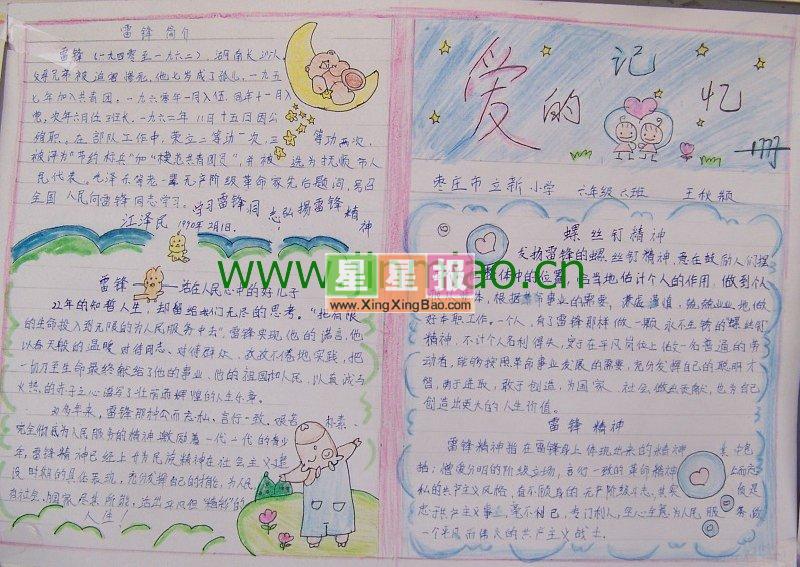 雷锋简介
雷锋(一九四零至一九六二),湖南长沙人,
父母兄弟被迫害惨死,他七岁成了孤儿,一九五
七年加入共青团,一九六零年一月入伍,同年十一月入
党,次年六月任班长,一九六二年八月十五日因公
殉职。在部队工作中,荣立二等功一次,三等功两次,
被评为"节约标兵"和"模范共青团员",并被选为抚顺市人
民代表。毛泽东等老一辈无产阶级革命家先后题词,号召
全国人民向雷锋同志学习。
学习雷锋同志弘扬雷锋精神
江泽民 1990年2月1日.
雷锋——活在人民心中的好儿子
22年的短暂人生,却留给我们无尽的思考。"把有限
的生命投入到无限的为人民服务中去",雷锋实现他的诺言,他
以春天般的温暖对待同志、对待群众,孜孜不倦地实践,把
一切乃至生命最终献给了他的事业、他的祖国和人民,以真诚与
火热的赤子之心谱写了壮丽而辉煌的人生乐章。
多年来,雷锋那种公而忘私、言行一致、艰苦朴素、
完全彻底为人民服务的精神激励着一代一代的青少
年,雷锋精神已经上升为民族精神在社会主义建
设时期的具体表现,充分发挥自己的才能,为人民
为社会、国家尽其所能,活出平凡但"精彩"的
人生!
爱的记忆
枣庄市立新小学 六年级六班 王秋颖
螺丝钉精神
发扬雷锋的螺丝钉精神,意在鼓励人们摆
整体中的位置,恰当地估计个人的作用,做到个人
体,根据革命事业的需要,谦虚谨慎,兢兢业业地做
好本职工作。一个人,有了雷锋那样做一颗永不生锈的螺丝钉
精神,不计个人名利得失,安于在平凡岗位上做一名普通的劳
动者,能够按照革命事业发展的需要,充分发挥自己的聪明才
智,勇于进取,敢于创造,为国家、社会做出贡献,也为自己
创造出更大的人生价值。
雷锋精神
雷锋精神指在雷锋身上体现出来的精神
括:憎爱分明的阶级立场,言行一致的革命精神
私的共产主义风格,奋不顾身的无产阶级斗志,其实
忠于共产主义事业,毫不利己,专门利人,全心全意为人民服务,做
一个平凡而伟大的共产主义战士.
星星报
www.XingXingBao.com